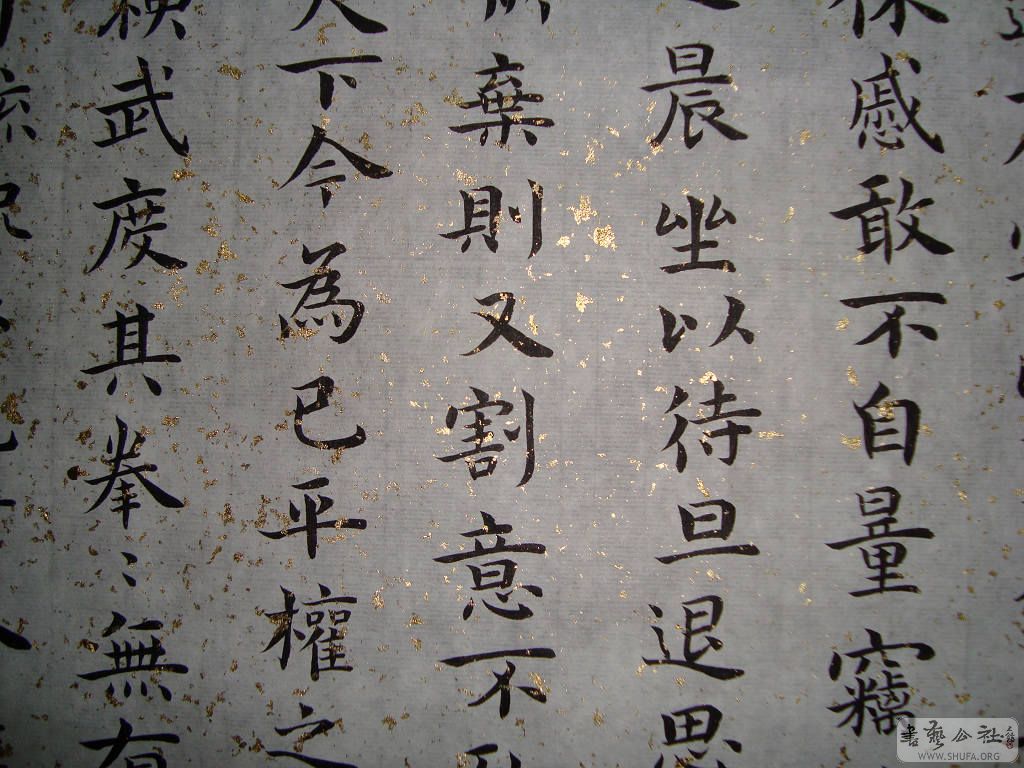 休慼敢不自量竊
晨坐以待旦退思
棄則又割意不
天下今為已平權之
武度其拳〻無有
書藝公社
WWW.SHUFA.ORG